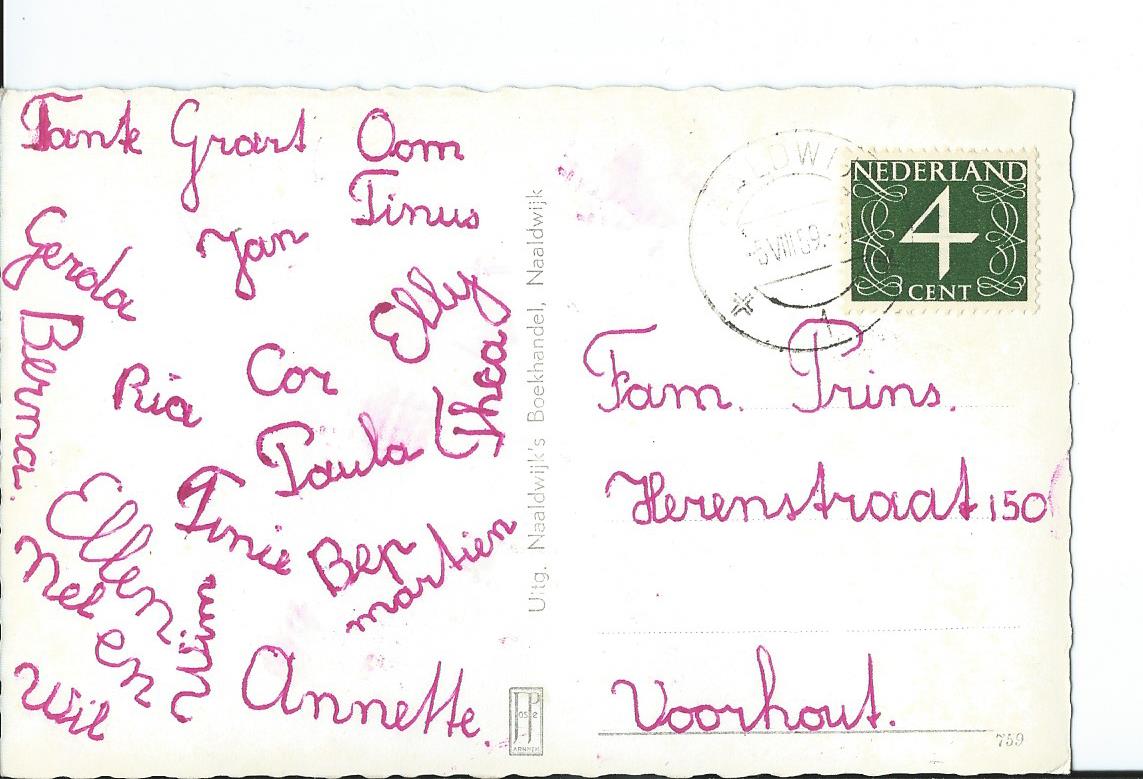 Tante Graart Oom
Tinus
Gerda
Jan
Elly
Berna.
Ria
Cor
Thea
Paula
Ellen
Tinie
Bep
martien
Nel
en
Wim
Wil
Annette.
Uitg. Naaldwijk's Boekhandel, Naaldwijk
JP
ARNHEM
NEDERLAND
4
CENT
Fam. Prins.
Herenstraat 150
Voorhout.
759